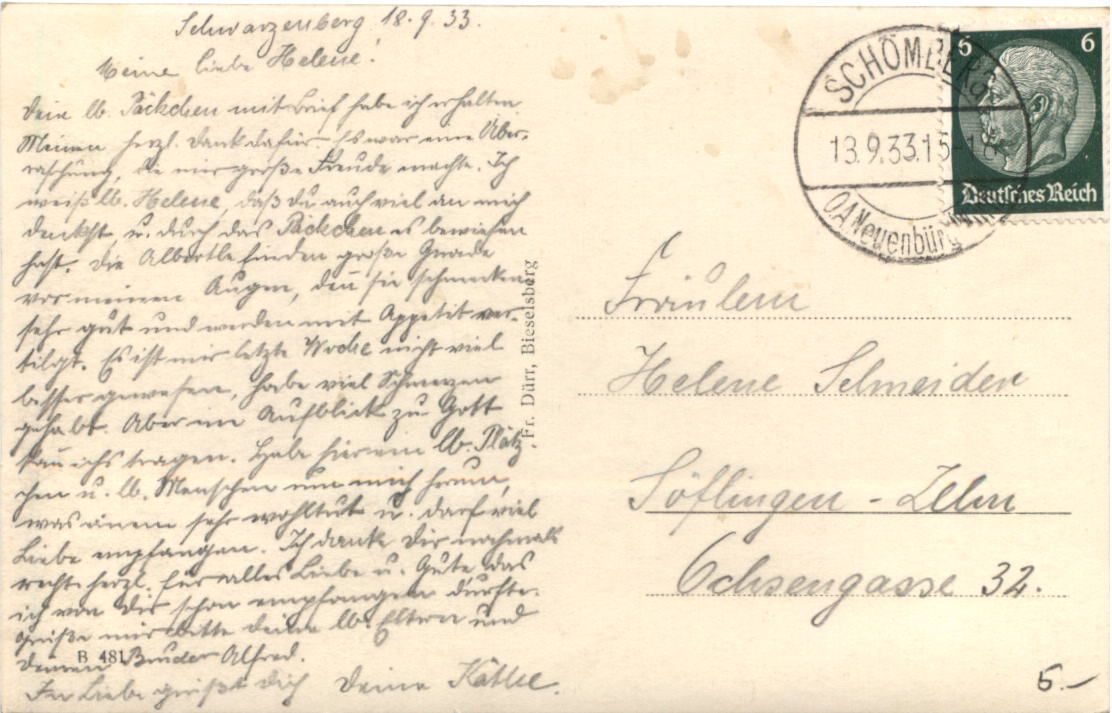 Schwarzenberg 18.9.33.
Meine liebe Helene!
Dein lb. Päckchen mit Brief habe ich erhalten
Meinen herzl. Dank dafür. Es war eine Über-
raschung, die mir große Freude machte. Ich
weiß lb. Helene, daß du auch viel an mich
denkst, u. durch das Päckchen es bewiesen
hast. Die Albertle finden große Gnade
vor meinen Augen, denn sie schmecken
sehr gut und werden mit Appetit ver-
tilgt. Es ist mir letzte Woche nicht viel
besser gewesen, habe viel Schmerzen
gehabt. Aber im Aufblick zu Gott
kann ichs tragen. Habe hier ein lb. Plätz-
chen u. lb. Menschen um mich herum,
was einem sehr wohltut u. darf viel
Liebe empfangen. Ich danke Dir nochmals
recht herzl. für alles Liebe u. Gute das
ich von Dir schon empfangen durfte.
Grüße mir bitte deine lb. Eltern und
deinen Bruder Alfred.
In Liebe grüßt dich deine Käthe.
B 481
Fr. Dürr, Bieselsberg
SCHÖMBERG
13.9.33.15-16
O.A.Neuenbürg
6 6
Deutsches Reich
Fräulein
Helene Schneider
Söflingen - Ulm
Ochsengasse 32.
5.-